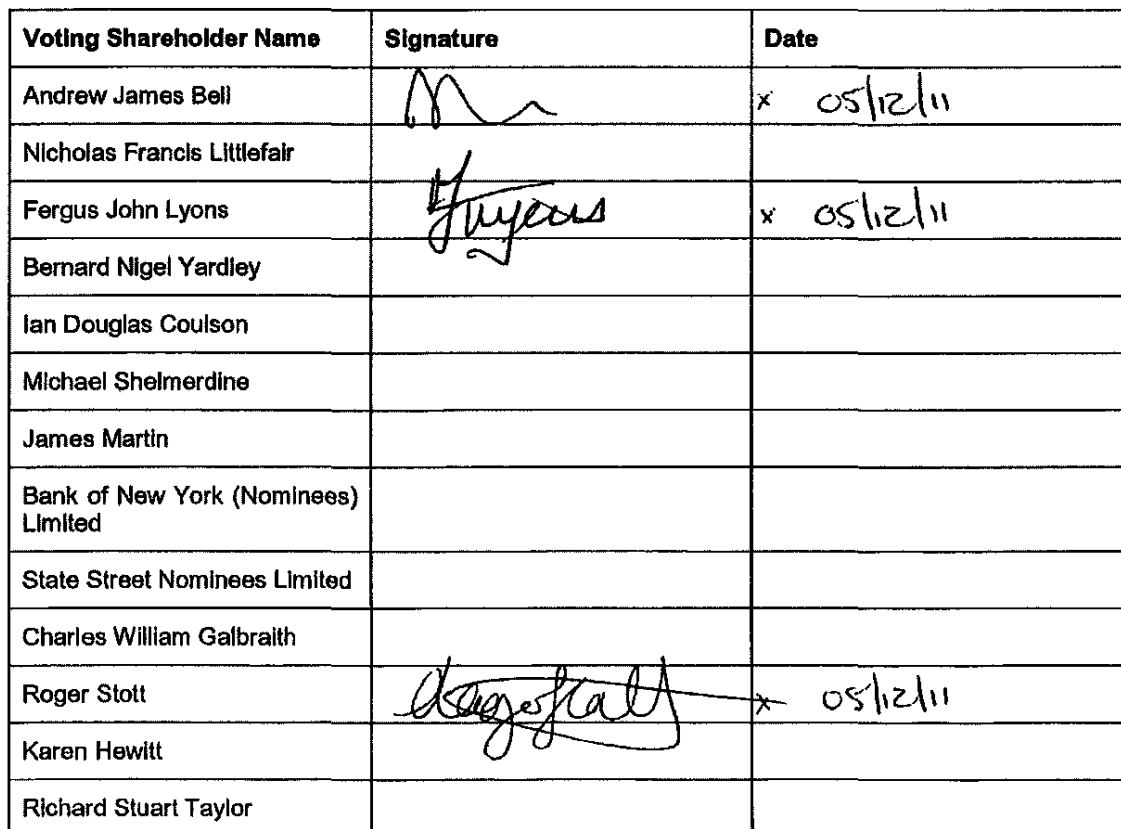 Voting Shareholder Name Signature Date
Andrew James Bell x 05/12/11
Nicholas Francis Littlefair
Fergus John Lyons x 05/12/11
Bernard Nigel Yardley
Ian Douglas Coulson
Michael Shelmerdine
James Martin
Bank of New York (Nominees)
Limited
State Street Nominees Limited
Charles William Galbraith
Roger Stott x 05/12/11
Karen Hewitt
Richard Stuart Taylor